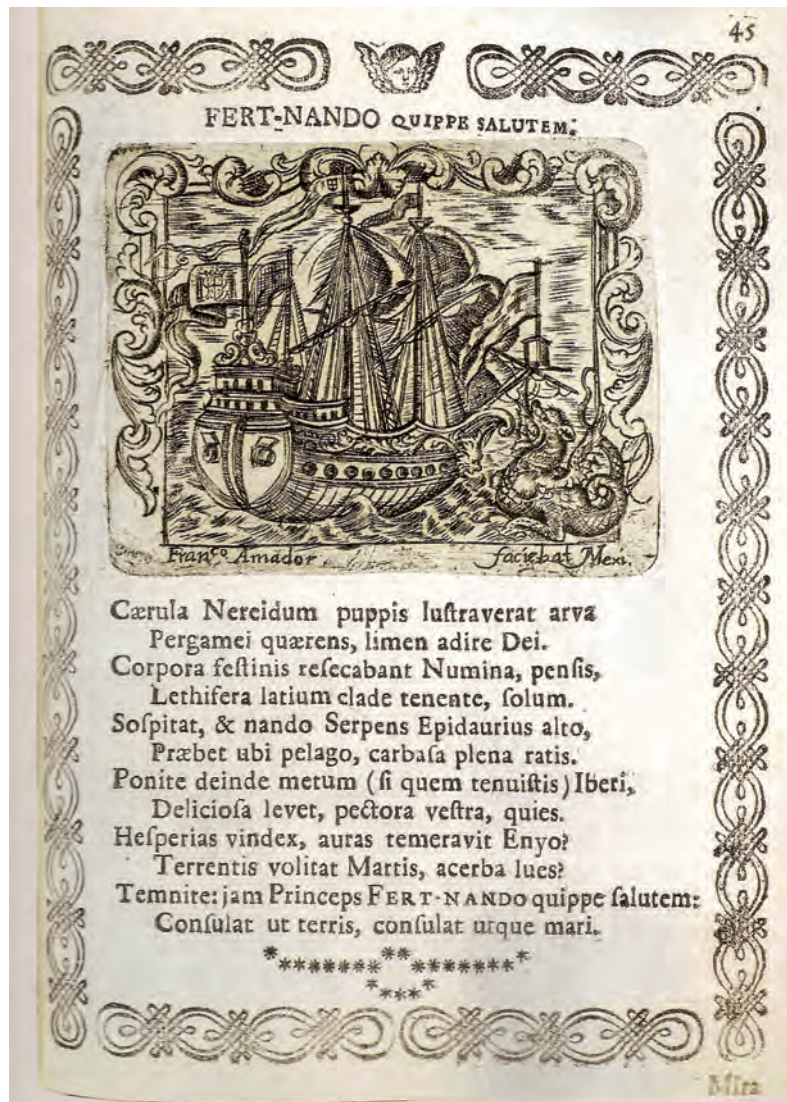 45
FERT-NANDO QUIPPE SALUTEM:
Fran.co Amador faciebat Mexi.
Cærula Nereidum puppis luſtraverat arva
Pergamei quærens, limen adire Dei.
Corpora feſtinis reſecabant Numina, penſis,
Lethifera latium clade tenente, ſolum.
Soſpitat, & nando Serpens Epidaurius alto,
Præbet ubi pelago, carbaſa plena ratis.
Ponite deinde metum (ſi quem tenuiſtis) Iberi,
Delicioſa levet, pectora veſtra, quies.
Heſperias vindex, auras temeravit Enyo?
Terrentis volitat Martis, acerba lues?
Temnite: jam Princeps FERT-NANDO quippe ſalutem:
Conſulat ut terris, conſulat utque mari.
Mira